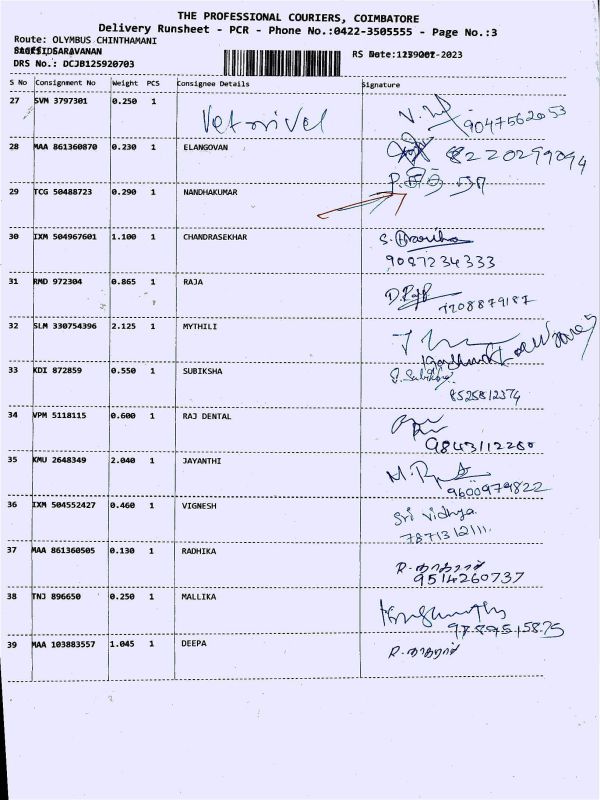 THE PROFESSIONAL COURIERS, COIMBATORE
Delivery Runsheet - PCR - Phone No.:0422-3505555 - Page No.:3
Route: OLYMBUS CHINTHAMANI
DRS No.: DCJB125920703
S No Consignment No Weight PCS Consignee Details Signature
27 SVM 3797301 0.250 1 Vetrivel
9047562053
28 MAA 861360870 0.230 1 ELANGOVAN 8220299094
29 TCG 50488723 0.290 1 NANDHAKUMAR
30 IXM 504967601 1.100 1 CHANDRASEKHAR
9087234333
31 RMD 972304 0.865 1 RAJA
7708879187
32 SLM 330754396 2.125 1 MYTHILI
33 KDI 872859 0.550 1 SUBIKSHA
8525812374
34 VPM 5118115 0.600 1 RAJ DENTAL
9843112260
35 KMU 2648349 2.040 1 JAYANTHI
9600979822
36 IXM 504552427 0.460 1 VIGNESH Sri Vidhya
7871312111.
37 MAA 861360505 0.130 1 RADHIKA
9514260737
38 TNJ 896650 0.250 1 MALLIKA
39 MAA 103883557 1.045 1 DEEPA